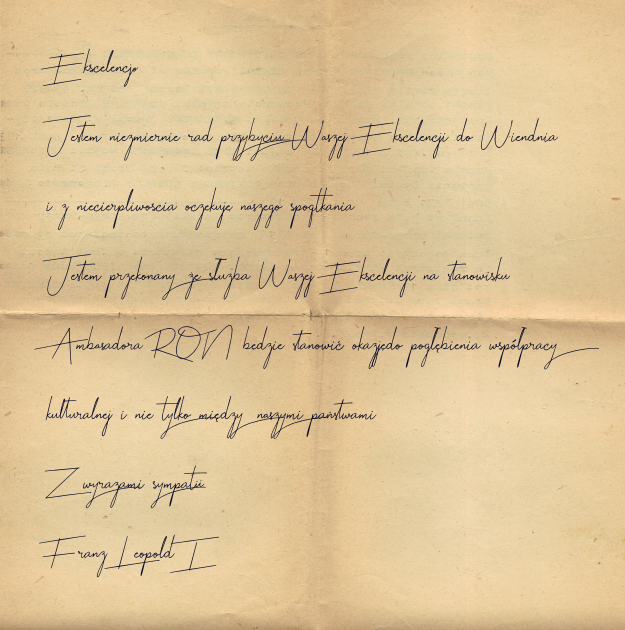 Ekscelencjo
Jestem niezmiernie rad przybyciu Waszej Ekscelencji do Wiednia
i z niecierpliwoscia oczekuje naszego spogtkania
Jestem przekonany ze służba Waszej Ekscelencji na stanowisku
Ambasadora RON będzie stanowić okazjedo pogłębienia współpracy
kulturalnej i nie tylko między naszymi państwami
Z wyrazami sympatii
Franz Leopold I